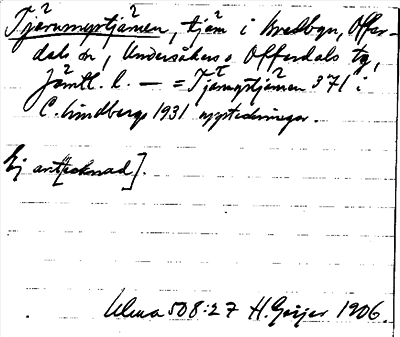 Tjärumyrtjärnen, tjärn i Bredbyn, Offer-
dals sn, Undersåkers o Offerdals tg,
Jämtl. l. — = Tjärmyrtjärnen 371 i
C. Lindbergs 1931 uppteckningar.
Ej antecknad].
Ulma 508:27 H. Geijer 1906.